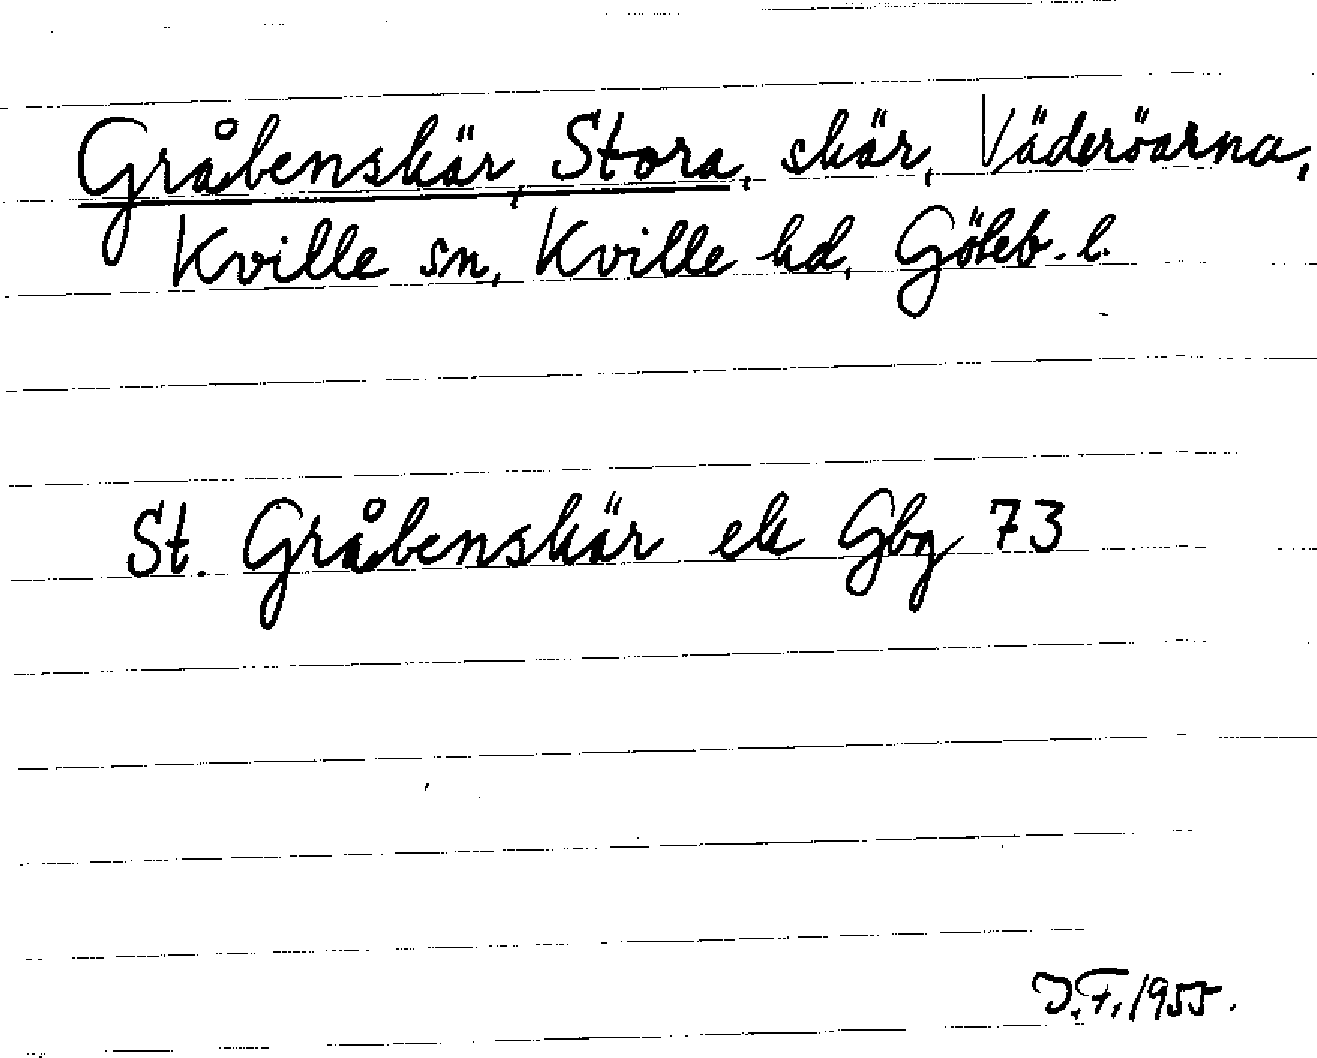 Gråbenskär, Stora, skär, Väderöarna,
Kville sn, Kville hd, Göteb. l.
St. Gråbenskär ek Gbg 73
J.F. 1955.